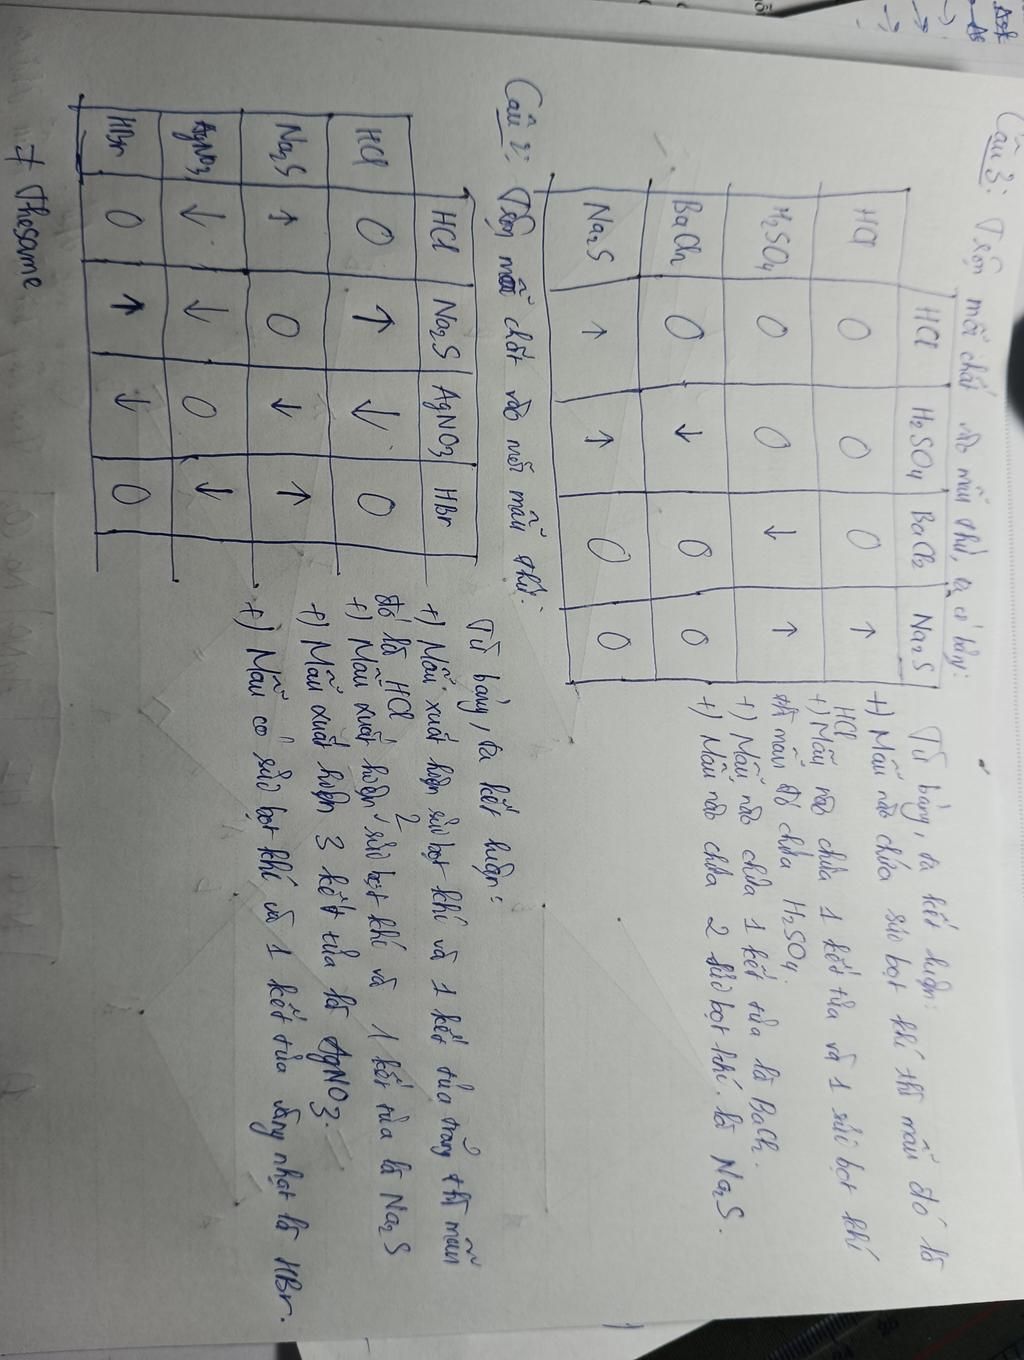 Câu 3: Trộn mỗi chất vào mẫu thử, ta có bảng:
HCl H2SO4 BaCl2 Na2S
HCl 0 0 0 ↑
H2SO4 0 0 ↓ ↑
BaCl2 0 ↓ 0 0
Na2S ↑ ↑ 0 0
Từ bảng, ta kết luận:
+) Mẫu nào chứa sủi bọt khí thì mẫu đó là
HCl
+) Mẫu nào chứa 1 kết tủa và 1 sủi bọt khí
thì mẫu đó chứa H2SO4
+) Mẫu nào chứa 1 kết tủa là BaCl2.
+) Mẫu nào chứa 2 sủi bọt khí là Na2S.
Câu 2: Trộn mỗi chất vào mỗi mẫu thử:
HCl Na2S AgNO3 HBr
HCl 0 ↑ ↓ 0
Na2S ↑ 0 ↓ ↑
AgNO3 ↓ ↓ 0 ↓
HBr 0 ↑ ↓ 0
Từ bảng, ta kết luận:
+) Mẫu xuất hiện sủi bọt khí và 1 kết tủa trắng thì mẫu
đó là HCl
+) Mẫu xuất hiện 2 sủi bọt khí và 1 kết tủa là Na2S
+) Mẫu xuất hiện 3 kết tủa là AgNO3.
+) Mẫu có sủi bọt khí và 1 kết tủa vàng nhạt là HBr.
# Thosame